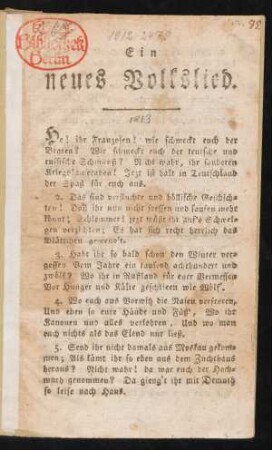 1812 24
92
Bibliothek
Berlin
Ein
neues Volkslied.
1813
He! ihr Franzosen! wie schmeckt euch der
Braten? Wie schmeckt euch der teutsche und
russische Schmauß? Nicht wahr, ihr sauberen
Kriegskameraden! Jezt ist halt in Teutschland
der Spaß für euch aus.
2. Das sind verfluchte und höllische Geschich-
ten! Daß ihr nun nicht fressen und saufen mehr
könnt; Schlemmer! jezt müßt ihr auf's Schwel-
gen verzichten; Es hat sich recht herrlich das
Blättchen gewend't.
3. Habt ihr so bald schon den Winter ver-
gessen Vom Jahre ein tausend achthundert und
zwölf? Wo ihr in Rußland für euer Vermessen
Vor Hunger und Kälte geschrieen wie Wölf'.
4. Wo euch aus Vorwitz die Nasen verfroren,
Und eben so eure Händ und Füß', Wo ihr
Kanonen und alles verlohren, Und wo man
euch nichts als das Elend nur ließ.
5. Seyd ihr nicht damals aus Moskau gekom-
men; Als kämt ihr so eben aus dem Zuchthaus
heraus? Nicht wahr! da war euch der Hoch-
muth genommen? Da gieng't ihr mit Demuth
so leise nach Haus.